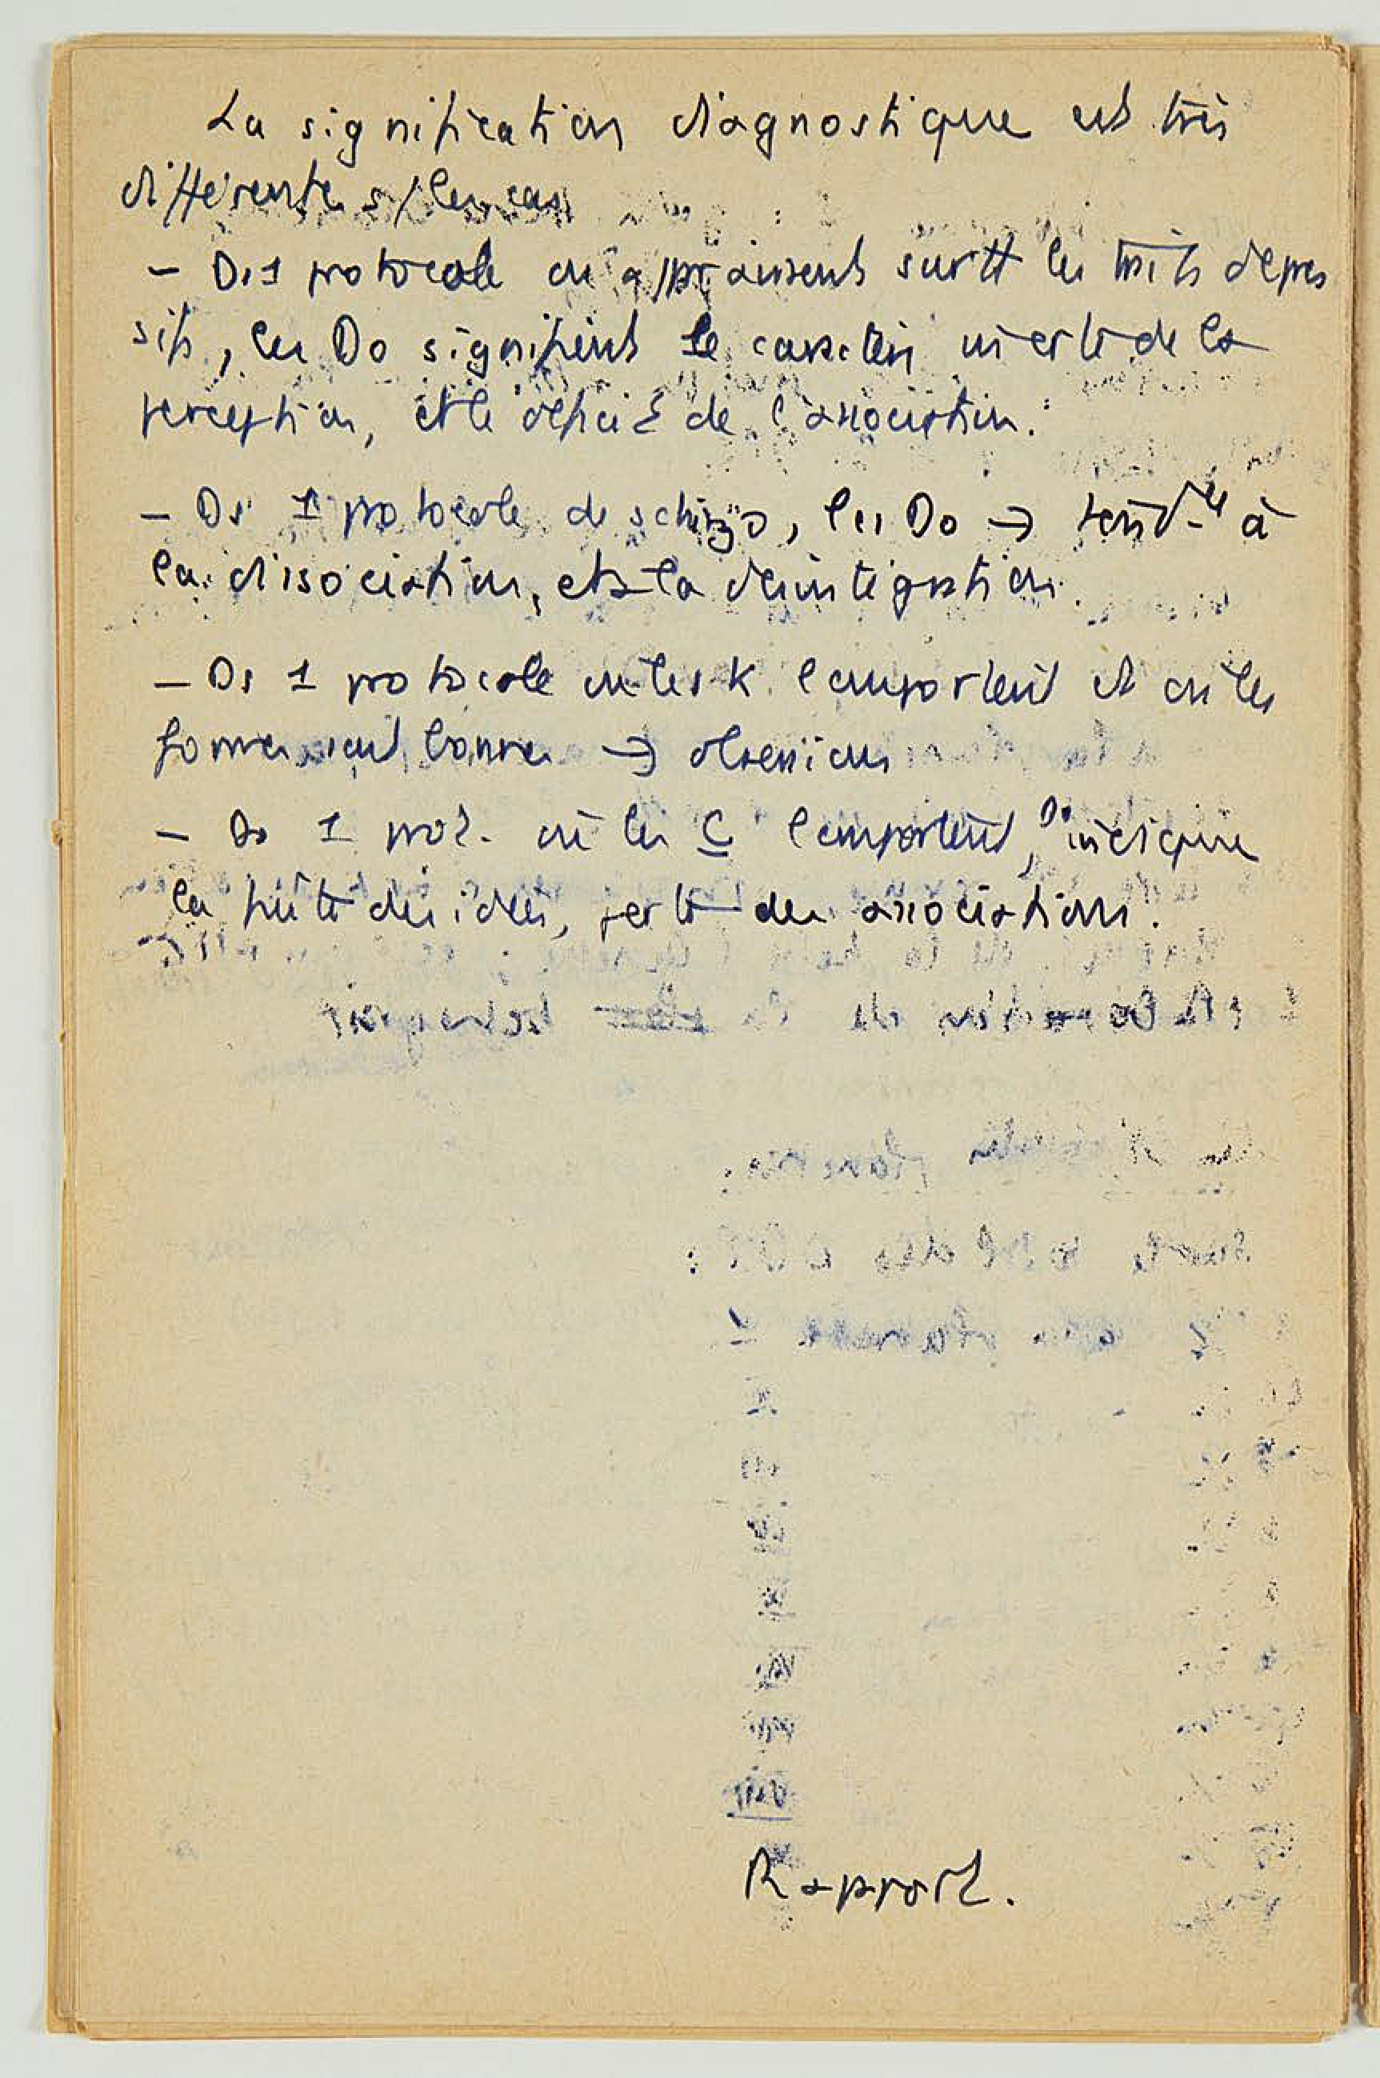 La signification diagnostique est très
différente s/ les cas
– Ds 1 protocole où apparaissent surtt les traits dépres
sifs, les Do signifient le caractère inerte de la
perception, et le déficit de l'association.
– Ds 1 protocole de schizo, les Do → tend-ce à
la dissociation, et à la désintégration.
– Ds 1 protocole où les K l'emportent et où les
formes sont bonnes → obsessions
– Ds 1 prot. où les C l'emportent, Do indique
la fuite des idées, perte des associations.
Rapport.